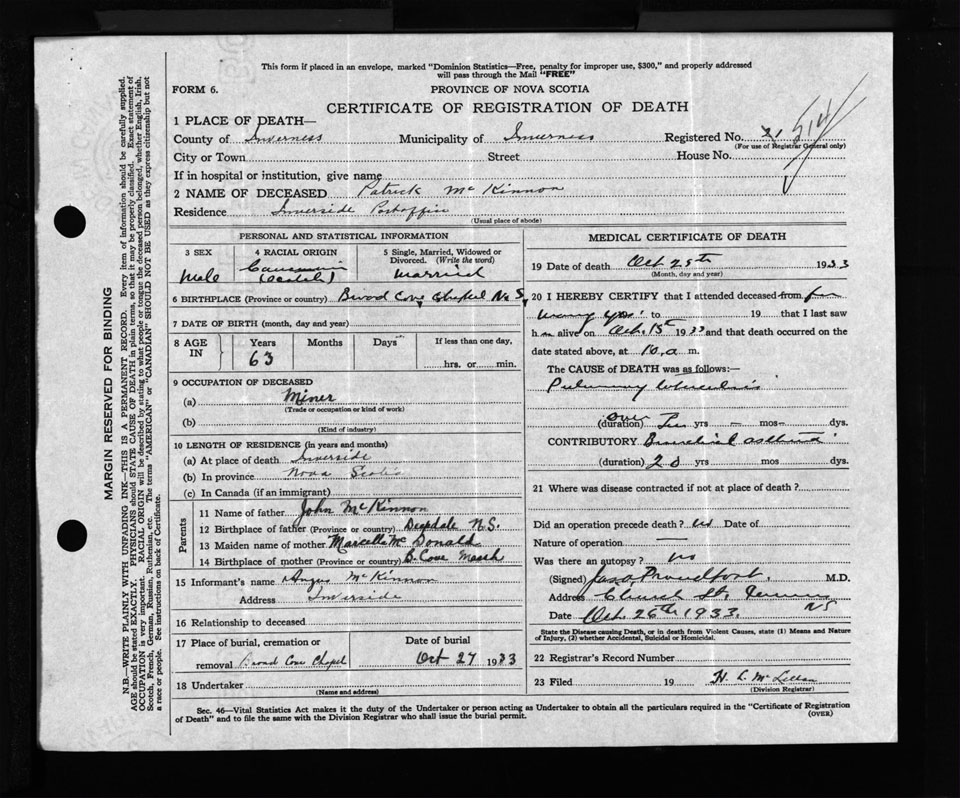 This form if placed in an envelope, marked "Dominion Statistics—Free, penalty for improper use, $300," and properly addressed
will pass through the Mail "FREE"
FORM 6.
PROVINCE OF NOVA SCOTIA
CERTIFICATE OF REGISTRATION OF DEATH
1 PLACE OF DEATH—
County of Inverness Municipality of Inverness Registered No.
(For use of Registrar General only)
City or Town Street House No.
If in hospital or institution, give name
2 NAME OF DECEASED Patrick McKinnon
Residence Inverside Postoffice
(Usual place of abode)
PERSONAL AND STATISTICAL INFORMATION
3 SEX 4 RACIAL ORIGIN 5 Single, Married, Widowed or
Divorced. (Write the word)
Male Married
6 BIRTHPLACE (Province or country) Broad Cove Chapel N.S.
7 DATE OF BIRTH (month, day and year)
8 AGE IN Years Months Days If less than one day,
63 hrs. or min.
9 OCCUPATION OF DECEASED
(a) Miner
(Trade or occupation or kind of work)
(b)
(Kind of industry)
10 LENGTH OF RESIDENCE (in years and months)
(a) At place of death Inverside
(b) In province Nova Scotia
(c) In Canada (if an immigrant)
Parents
11 Name of father John McKinnon
12 Birthplace of father (Province or country) Deepdale N.S.
13 Maiden name of mother Marcella McDonald
14 Birthplace of mother (Province or country) B. Cove Marsh
15 Informant's name Angus McKinnon
Address Inverside
16 Relationship to deceased
17 Place of burial, cremation or Date of burial
removal Broad Cove Chapel Oct 27 1933
18 Undertaker
(Name and address)
MEDICAL CERTIFICATE OF DEATH
19 Date of death Oct 25th 1933
(Month, day and year)
20 I HEREBY CERTIFY that I attended deceased from for
many yrs. to 19 that I last saw
h m alive on Oct. 15th 1933 and that death occurred on the
date stated above, at 10. a m.
The CAUSE OF DEATH was as follows:—
Pulmonary tuberculosis
over
(duration) Ten yrs — mos— dys.
CONTRIBUTORY Bronchial asthma
(duration) 20 yrs mos dys.
21 Where was disease contracted if not at place of death?
Did an operation precede death? no Date of
Nature of operation —
Was there an autopsy? no
(Signed) Jas. A. Proudfoot. M.D.
Address Church St. NS
Date Oct. 26th 1933.
State the Disease causing Death, or in death from Violent Causes, state (1) Means and Nature
of Injury, (2) whether Accidental, Suicidal or Homicidal.
22 Registrar's Record Number
23 Filed 19 H. L. McLellan
(Division Registrar)
Sec. 46—Vital Statistics Act makes it the duty of the Undertaker or person acting as Undertaker to obtain all the particulars required in the "Certificate of Registration
of Death" and to file the same with the Division Registrar who shall issue the burial permit.
(OVER)
MARGIN RESERVED FOR BINDING
N.B.—WRITE PLAINLY WITH UNFADING INK—THIS IS A PERMANENT RECORD. Every item of information should be carefully supplied.
AGE should be stated EXACTLY. PHYSICIANS should STATE CAUSE OF DEATH in plain terms, so that it may be properly classified. Exact statement of
OCCUPATION is very important. RACIAL ORIGIN will be described by stating to what people or tongue the deceased person belonged, whether English, Irish,
Scotch, French, German, Russian, Ruthenian, etc. The terms "AMERICAN" or "CANADIAN" SHOULD NOT BE USED as they express citizenship but not
a race or people. See instructions on back of Certificate.